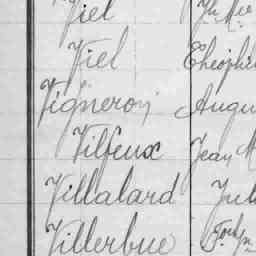 Viel
Viel Théophi
Vigneron Augu
Vilfeux Jean M
Villalard Jul
Villerbue